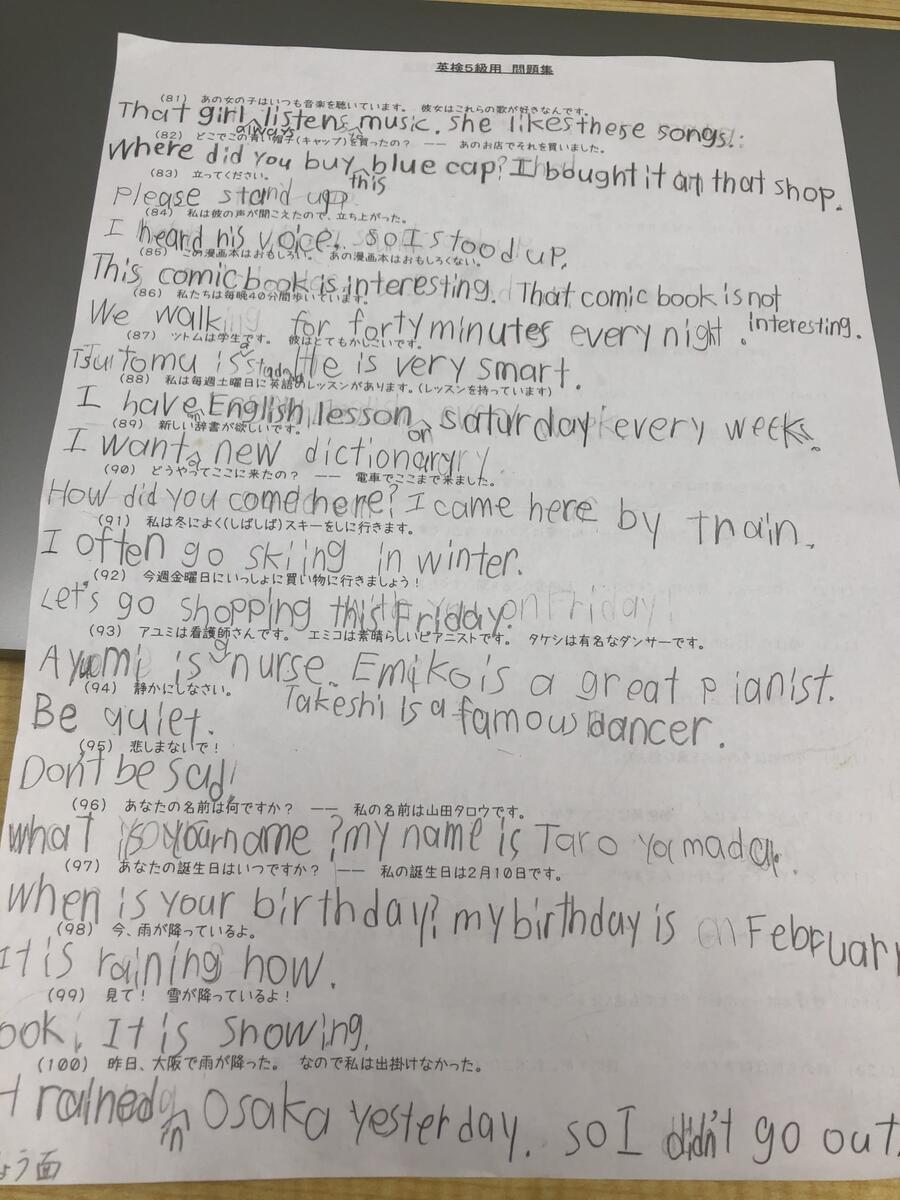 英検5級用 問題集
(81) あの女の子はいつも音楽を聴いています。 彼女はこれらの歌が好きなんです。
That girl always listens to music. She likes these songs.
(82) どこでこの青い帽子(キャップ)を買ったの? —— あのお店でそれを買いました。
Where did you buy this blue cap? I bought it at that shop.
(83) 立ってください。
Please stand up
(84) 私は彼の声が聞こえたので、立ち上がった。
I heard his voice. so I stood up.
(85) この漫画本はおもしろい。 あの漫画本はおもしろくない。
This comic book is interesting. That comic book is not interesting.
(86) 私たちは毎晩40分間歩いています。
We walk for forty minutes every night.
(87) ツトムは学生です。 彼はとてもかしこいです。
Tsutomu is a He is very smart.
(88) 私は毎週土曜日に英語のレッスンがあります。(レッスンを持っています)
I have an English lesson on saturday every week.
(89) 新しい辞書が欲しいです。
I want a new dictionary.
(90) どうやってここに来たの? —— 電車でここまで来ました。
How did you come here? I came here by train.
(91) 私は冬によく(しばしば)スキーをしに行きます。
I often go skiing in winter.
(92) 今週金曜日にいっしょに買い物に行きましょう!
Let's go shopping this Friday.
(93) アユミは看護師さんです。 エミコは素晴らしいピアニストです。 タケシは有名なダンサーです。
Ayumi is a nurse. Emiko is a great pianist.
Takeshi is a famous dancer.
(94) 静かにしなさい。
Be quiet.
(95) 悲しまないで!
Don't be sad!
(96) あなたの名前は何ですか? —— 私の名前は山田タロウです。
what is your name? my name is Taro Yamada.
(97) あなたの誕生日はいつですか? —— 私の誕生日は2月10日です。
When is your birthday? my birthday is on February
(98) 今、雨が降っているよ。
It is raining now.
(99) 見て! 雪が降っているよ!
ook. It is snowing.
(100) 昨日、大阪で雨が降った。 なので私は出掛けなかった。
t rained in Osaka yesterday. so I didn't go out.
う面